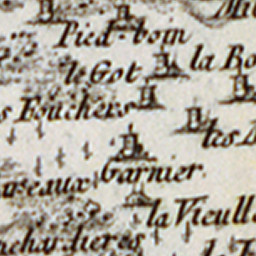 Pied boin
le Got
la Ro
s Fouchers
les
Garnier
areaux
la Vieull
chardieres